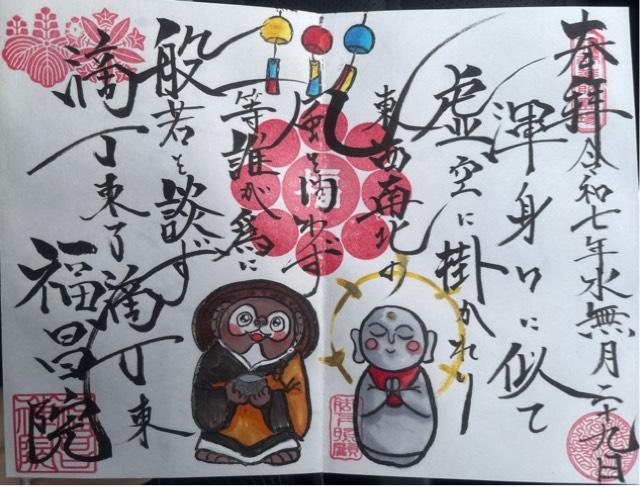 奉拝 令和七年水無月二十九日
渾身口に似て
虚空に掛かれり
東西南北の
風を問わず
等誰が為に
般若を談ず
滴丁東了滴丁東
福昌院